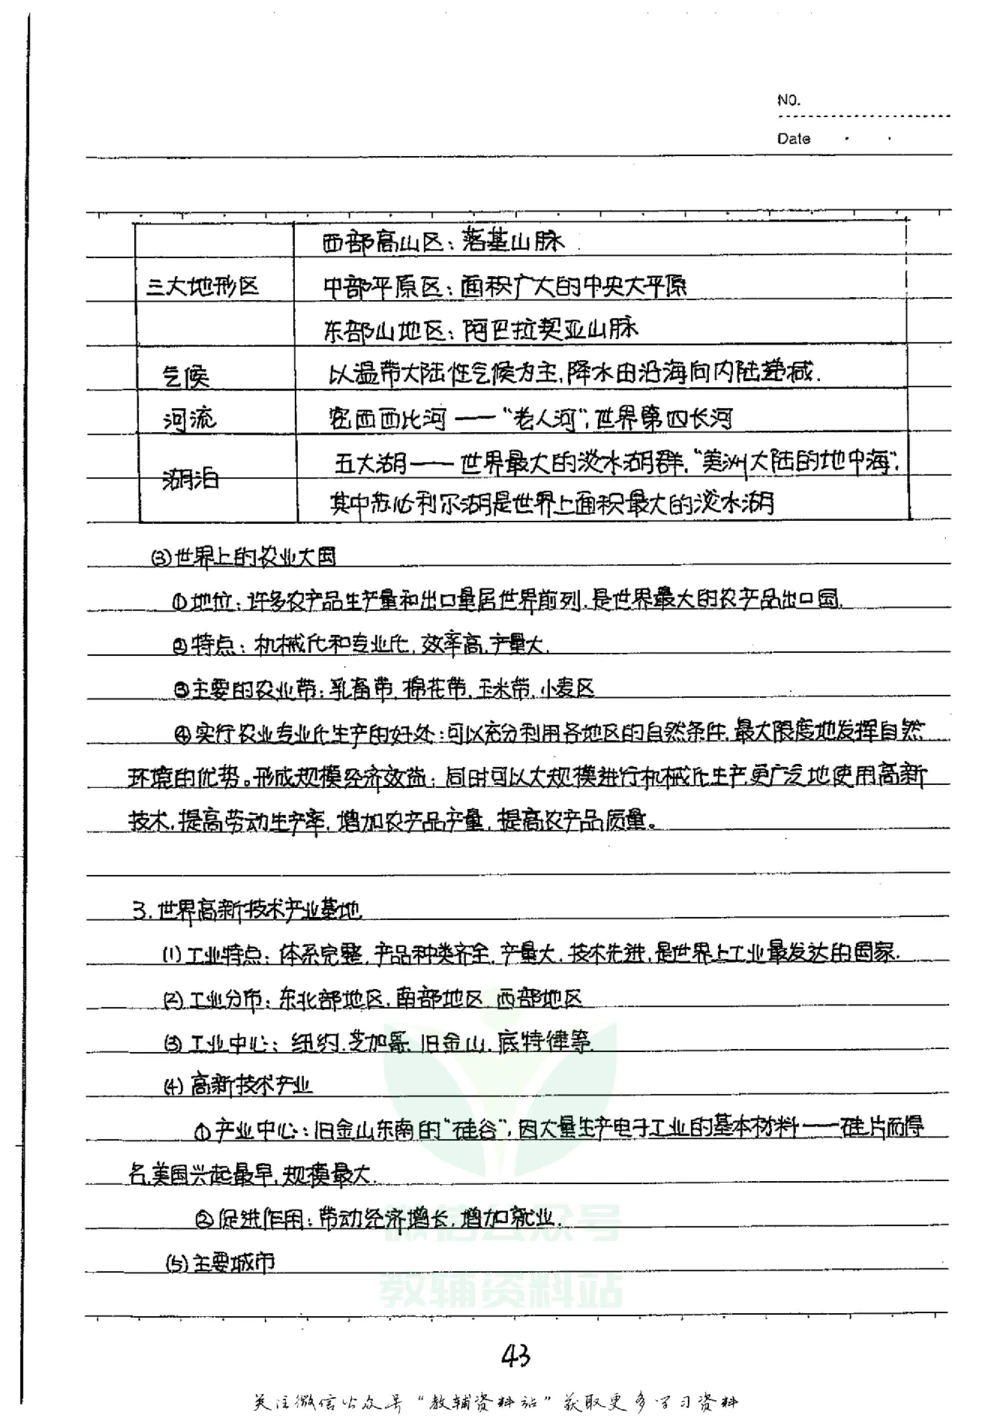 NO.
Date
西部高山区：落基山脉
三大地形区 中部平原区：面积广大的中央大平原
东部山地区：阿巴拉契亚山脉
气候 以温带大陆性气候为主，降水由沿海向内陆递减.
河流 密西西比河——“老人河”，世界第四长河
湖泊 五大湖——世界最大的淡水湖群，“美洲大陆的地中海”，
其中苏必利尔湖是世界上面积最大的淡水湖
(3)世界上的农业大国
①地位：许多农产品生产量和出口量居世界前列，是世界最大的农产品出口国.
②特点：机械化和专业化，效率高，产量大.
③主要的农业带：乳畜带，棉花带，玉米带，小麦区
④实行农业专业化生产的好处：可以充分利用各地区的自然条件，最大限度地发挥自然
环境的优势。形成规模经济效益；同时可以大规模进行机械化生产，更广泛地使用高新
技术，提高劳动生产率，增加农产品产量，提高农产品质量。
3.世界高新技术产业基地
(1)工业特点：体系完整，产品种类齐全，产量大，技术先进，是世界上工业最发达的国家.
(2)工业分布：东北部地区，南部地区，西部地区
(3)工业中心：纽约，芝加哥，旧金山，底特律等.
(4)高新技术产业
①产业中心：旧金山东南的“硅谷”，因大量生产电子工业的基本材料——硅片而得
名，美国兴起最早，规模最大.
②促进作用：带动经济增长，增加就业.
(5)主要城市
微信公众号
教辅资料站
43
关注微信公众号“教辅资料站”获取更多学习资料